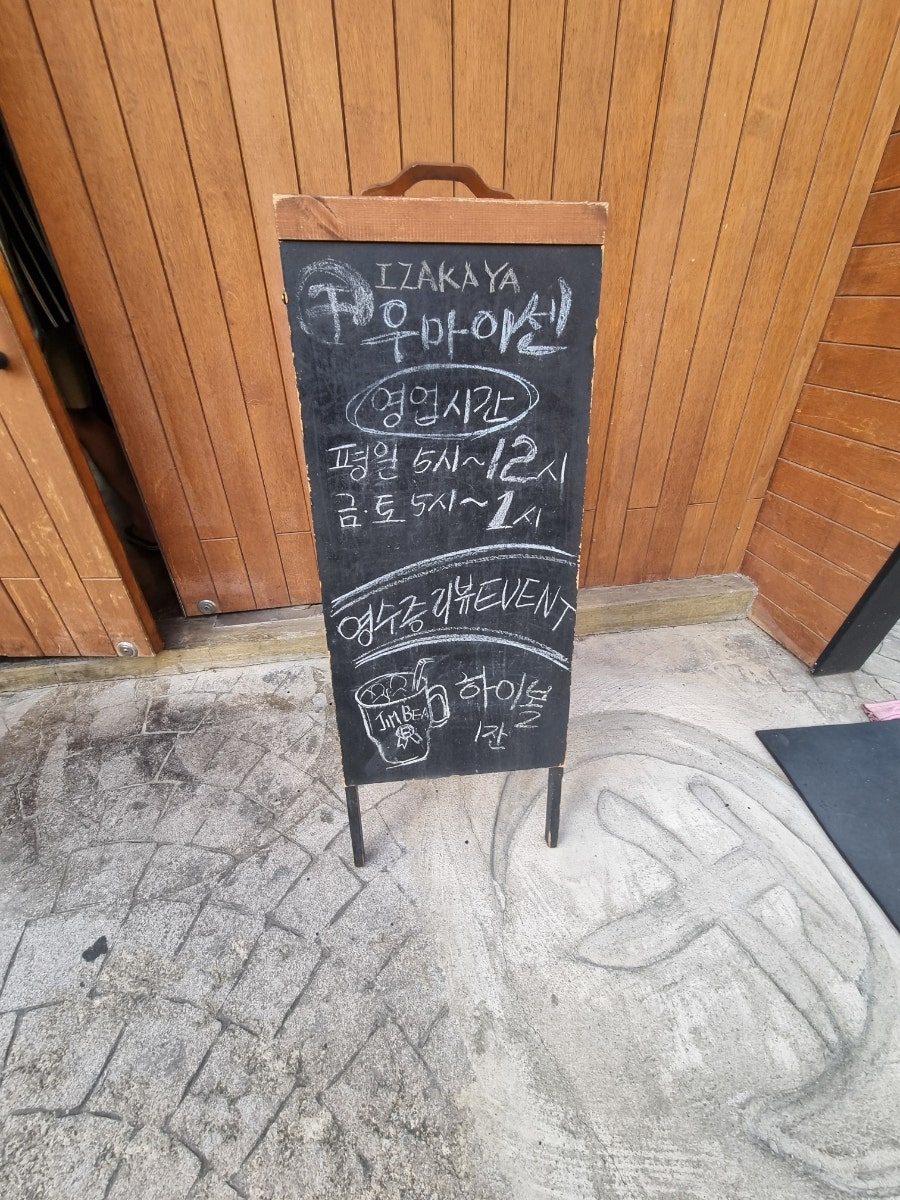 IZAKAYA
우마이센
영업시간
평일 5시~12시
금·토 5시~1시
영수증 리뷰 EVENT
JIM BEA
하이볼
1잔